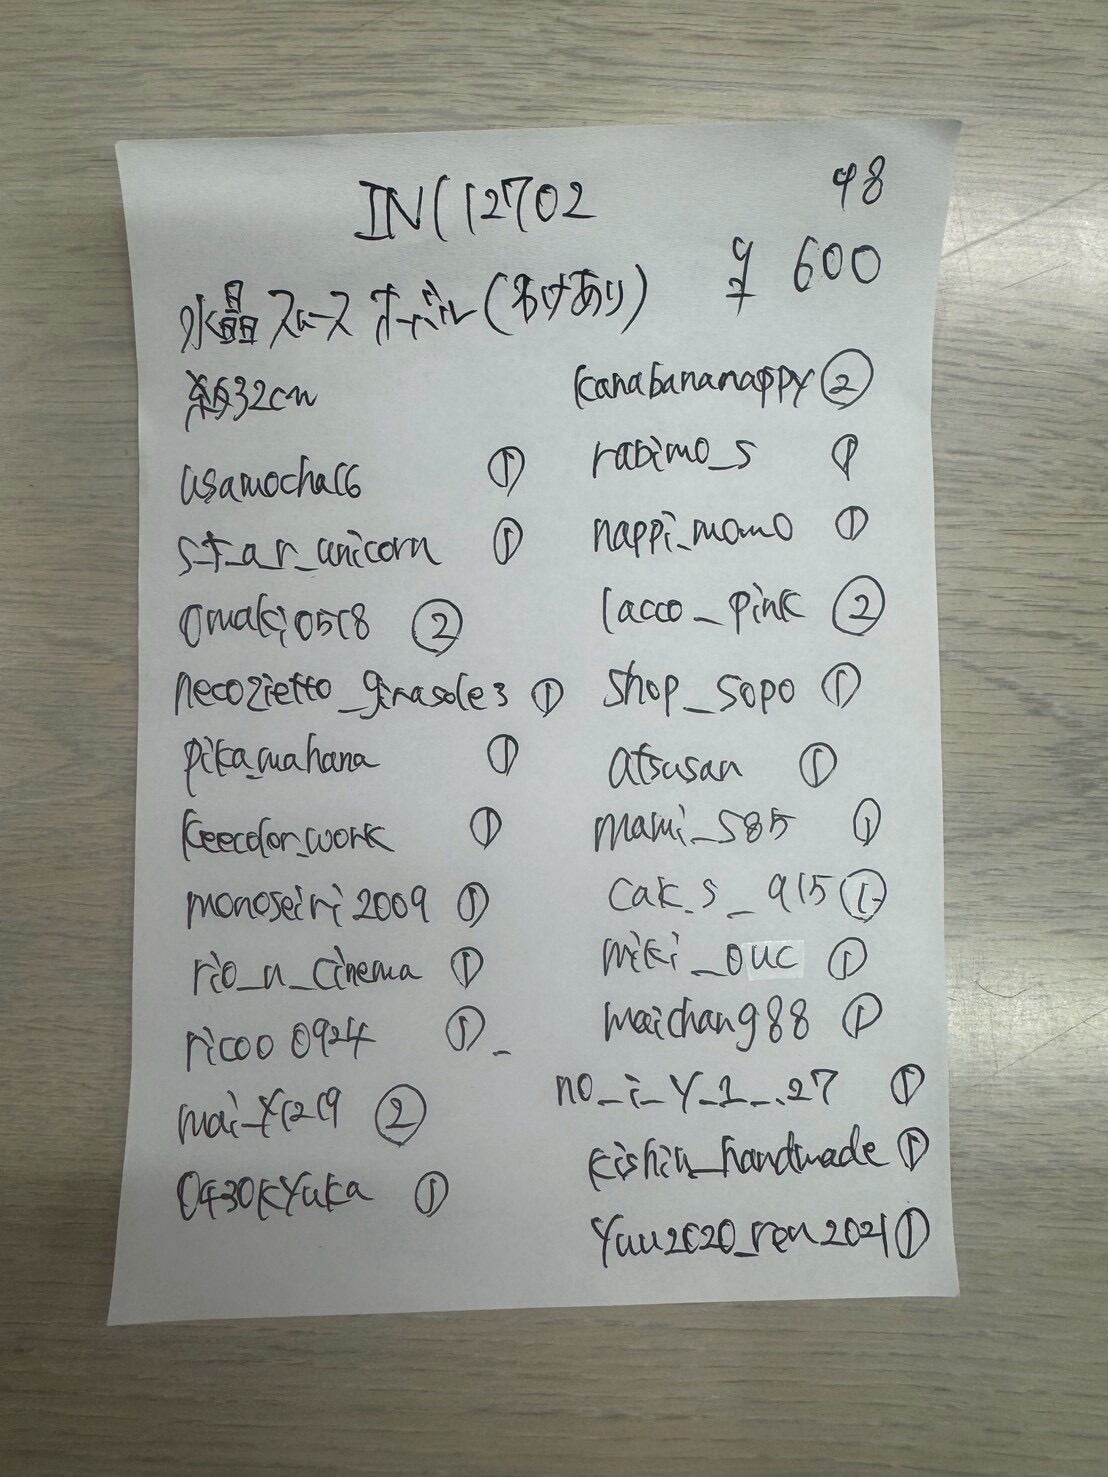 IN112702
48
¥ 600
水晶スムース オーバル(わけあり)
約32cm
usamocha16 ①
s_t_a_r_unicorn ①
omaki0518 ②
necozietto_girasole3 ①
pika_mahana ①
keecolor_work ①
monoseiri2009 ①
rio_n_cinema ①
ricoo0924 ①
mai_y1219 ②
0430kyuka ①
kanabananappy ②
rabimo_s ①
nappi_momo ①
lacco_pink ②
shop_sopo ①
atsusan ①
mami_s85 ①
cak.s_915 ①
miki_ouc ①
maichang88 ①
no_i_y_1_.27 ①
kishin_handmade ①
yuu2020_ren2021 ①